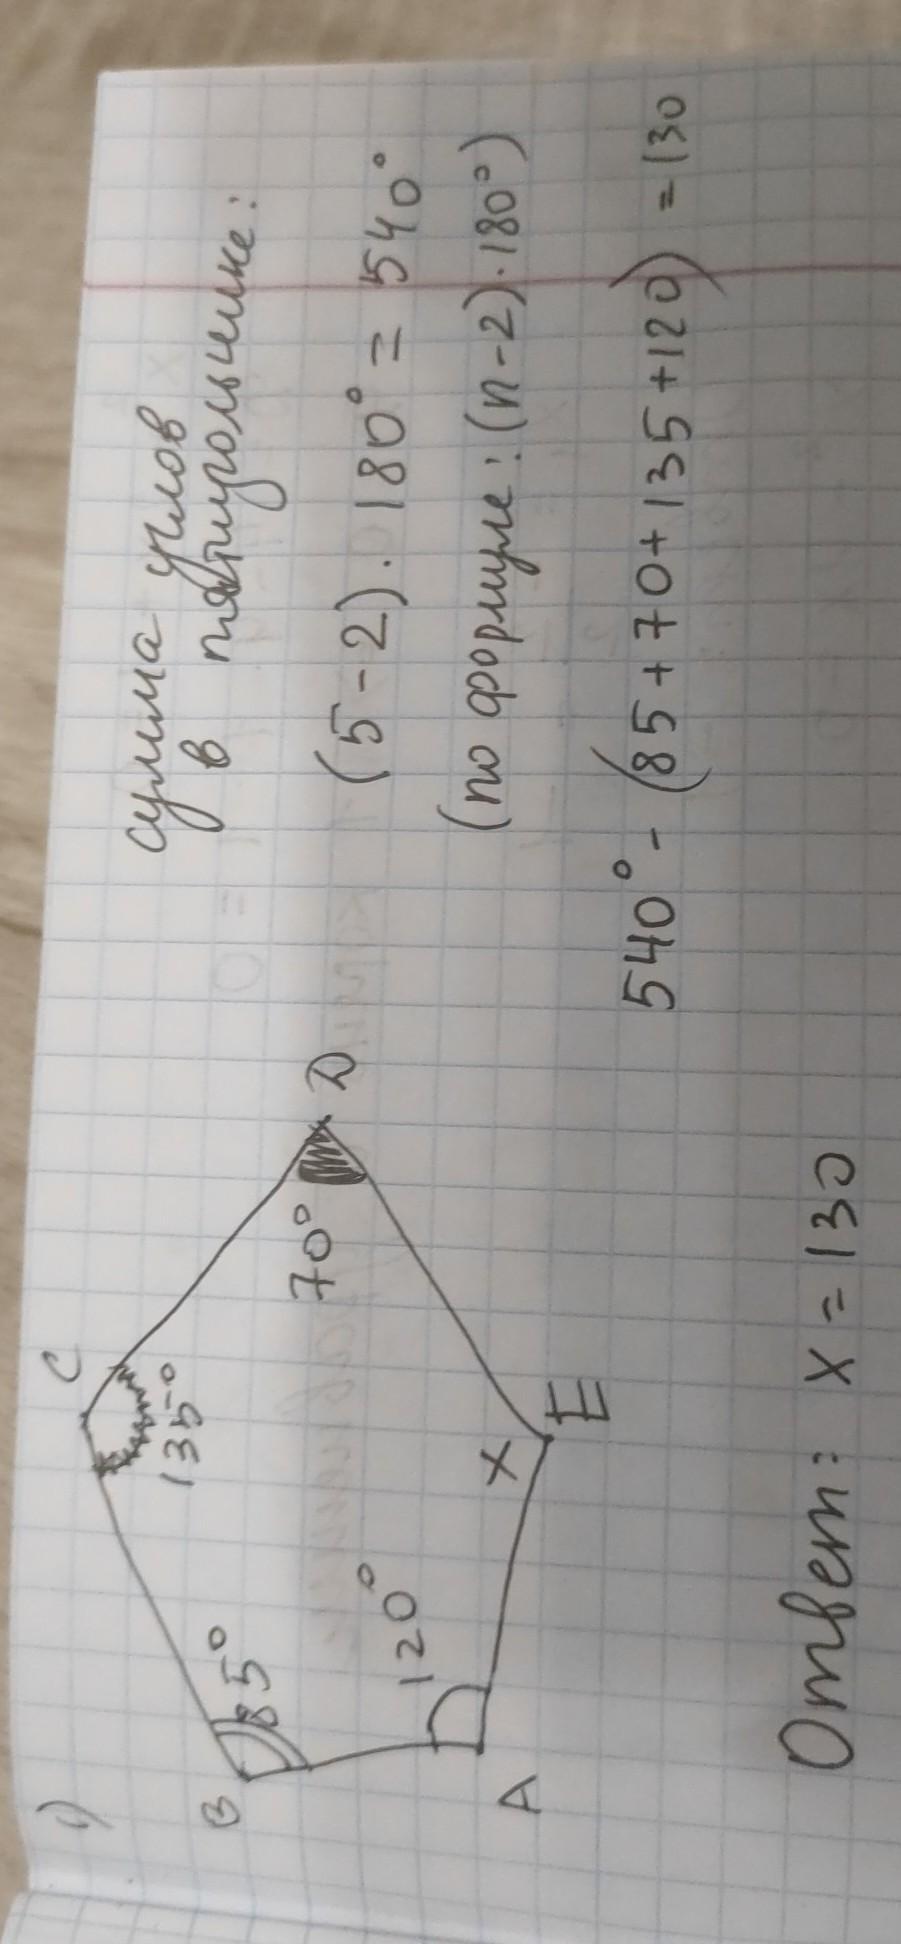 1)
B
C
D
A
E
85°
135°
70°
120°
x
сумма углов
в пятиугольнике:
(5-2)·180° = 540°
(по формуле: (n-2)·180°)
540° - (85+70+135+120) = 130
Ответ: x = 130